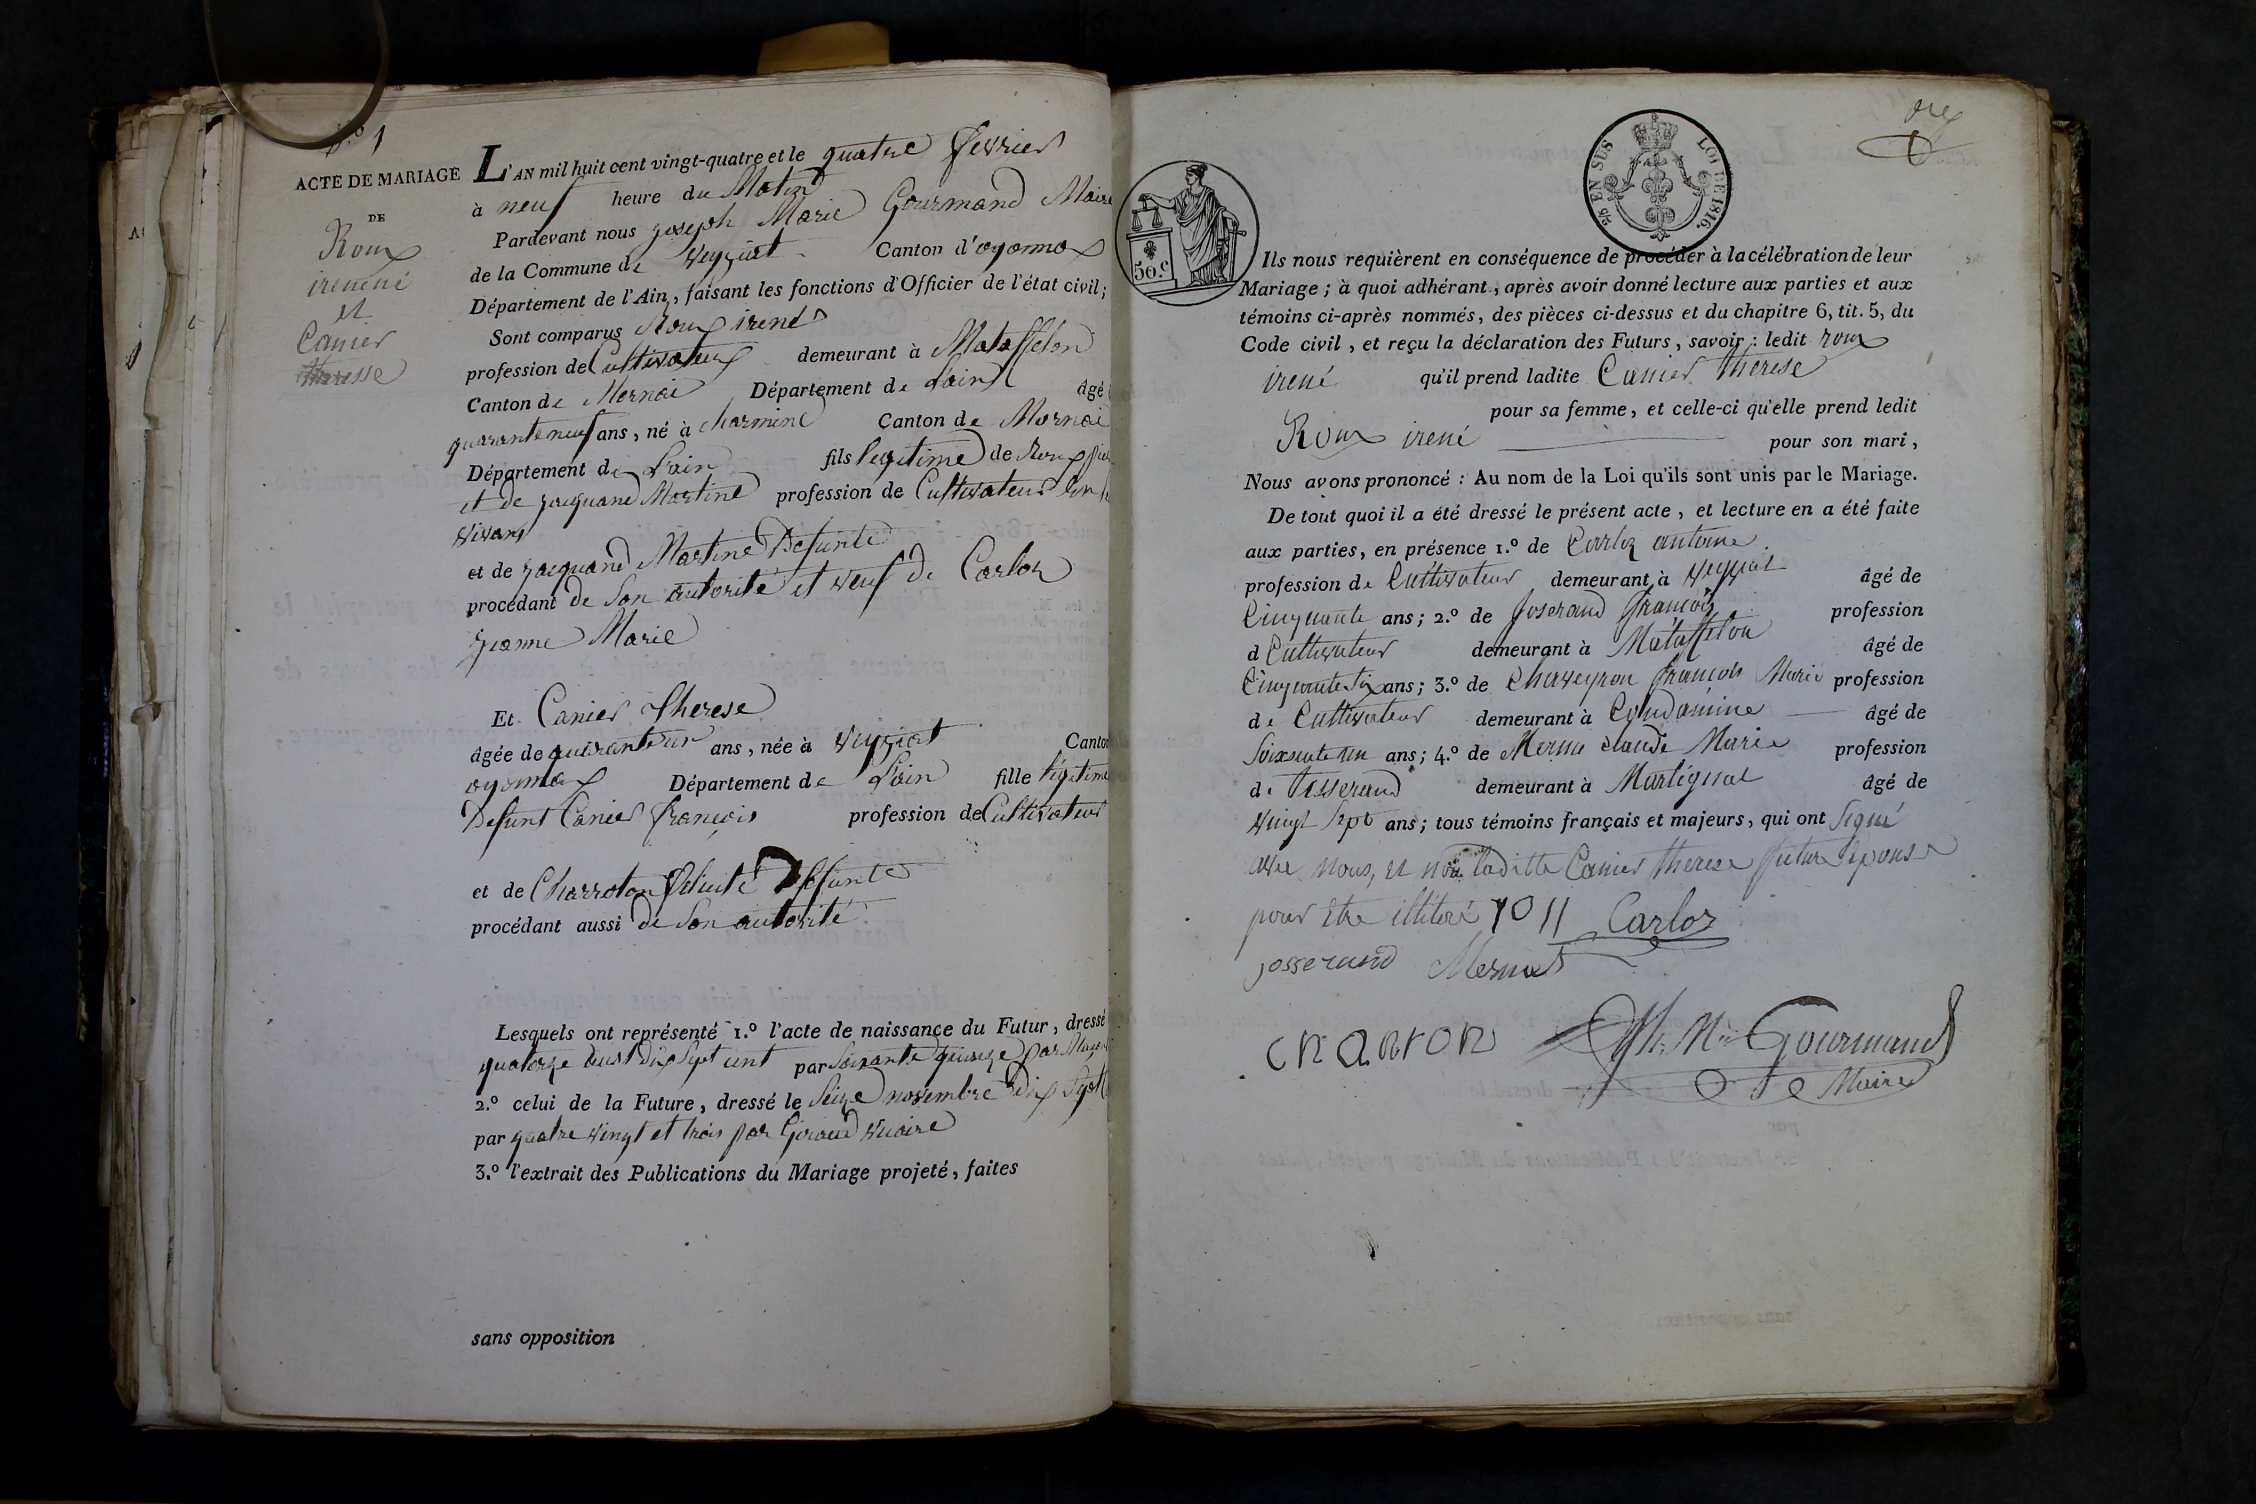 N.o 1
ACTE DE MARIAGE
DE
Roux
irenené
et
Canier
theresse
L'AN mil huit cent vingt-quatre et le quatre fevrier
à neuf heure du Matin
Pardevant nous joseph Marie Gourmand Maire
de la Commune de Veyziat Canton d'oyonnax
Département de l'Ain, faisant les fonctions d'Officier de l'état civil;
Sont comparus Roux irené
profession de Cultivateur demeurant à Mataffelon
Canton de Mornai Département de Lain âgé
quaranteneuf ans, né à charmine Canton de Mornai
Département de Lain fils legitime de Roux
et de jacquand Martine profession de Cultivateur
vivant
et de jacquand Martine Defunte
procédant de son autorité et veuf de Carloz
jeanne Marie
Et Canier Therese
âgée de quaranteun ans, née à veyziat Canton
oyonnax Département de Lain fille légitime
Defunt Canier françois profession de Cultivateur
et de Charroton felicité Defunte
procédant aussi de son autorité
Lesquels ont représenté 1.o l'acte de naissance du Futur, dressé
quatorze aust dix sept cent par soixante quinze par
2.o celui de la Future, dressé le Seize novembre dix sept
par quatre vingt et trois par Giroud vicaire
3.o l'extrait des Publications du Mariage projeté, faites
sans opposition
50 c
EN SUS LOI DE 1816.
Ils nous requièrent en conséquence de procéder à la célébration de leur
Mariage; à quoi adhérant, après avoir donné lecture aux parties et aux
témoins ci-après nommés, des pièces ci-dessus et du chapitre 6, tit. 5, du
Code civil, et reçu la déclaration des Futurs, savoir: ledit roux
irené qu'il prend ladite Canier therese
pour sa femme, et celle-ci qu'elle prend ledit
Roux irené pour son mari,
Nous avons prononcé: Au nom de la Loi qu'ils sont unis par le Mariage.
De tout quoi il a été dressé le présent acte, et lecture en a été faite
aux parties, en présence 1.o de Carloz antoine
profession de Cultivateur demeurant à veyziat âgé de
Cinquante ans; 2.o de Joserand françois profession
d Cultivateur demeurant à Mataffelon âgé de
Cinquante six ans; 3.o de Chaveyron françois Marie profession
de Cultivateur demeurant à Condamine âgé de
Soixante un ans; 4.o de Mermet claude Marie profession
de Tisserand demeurant à Martignat âgé de
vingt sept ans; tous témoins français et majeurs, qui ont signé
avec nous, et non laditte Canier therese future épouse
pour etre illiteré Carloz
josserand Mermet
Gourmand
Maire